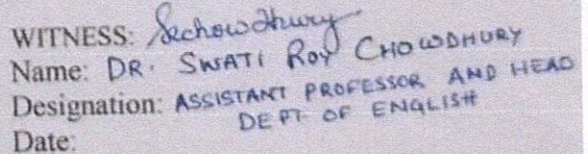 WITNESS: Srchowdhury
Name: DR. SWATI ROY CHOWDHURY
Designation: ASSISTANT PROFESSOR AND HEAD
DEPT OF ENGLISH
Date: